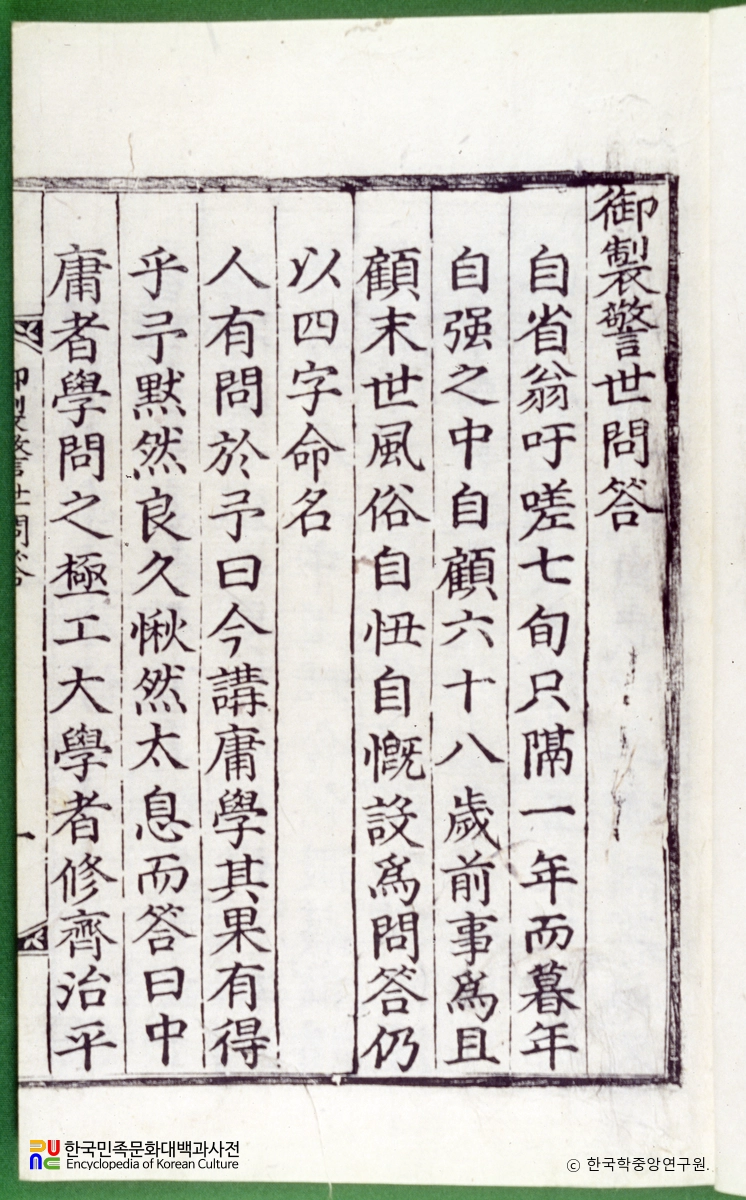 御製警世問答
自省翁吁嗟七旬只隔一年而暮年
自强之中自顧六十八歲前事爲且
顧末世風俗自忸自慨設爲問答仍
以四字命名
人有問於予曰今講庸學其果有得
乎予默然良久愀然太息而答曰中
庸者學問之極工大學者修齊治平
御製警世問答
一
한국민족문화대백과사전
Encyclopedia of Korean Culture
© 한국학중앙연구원.